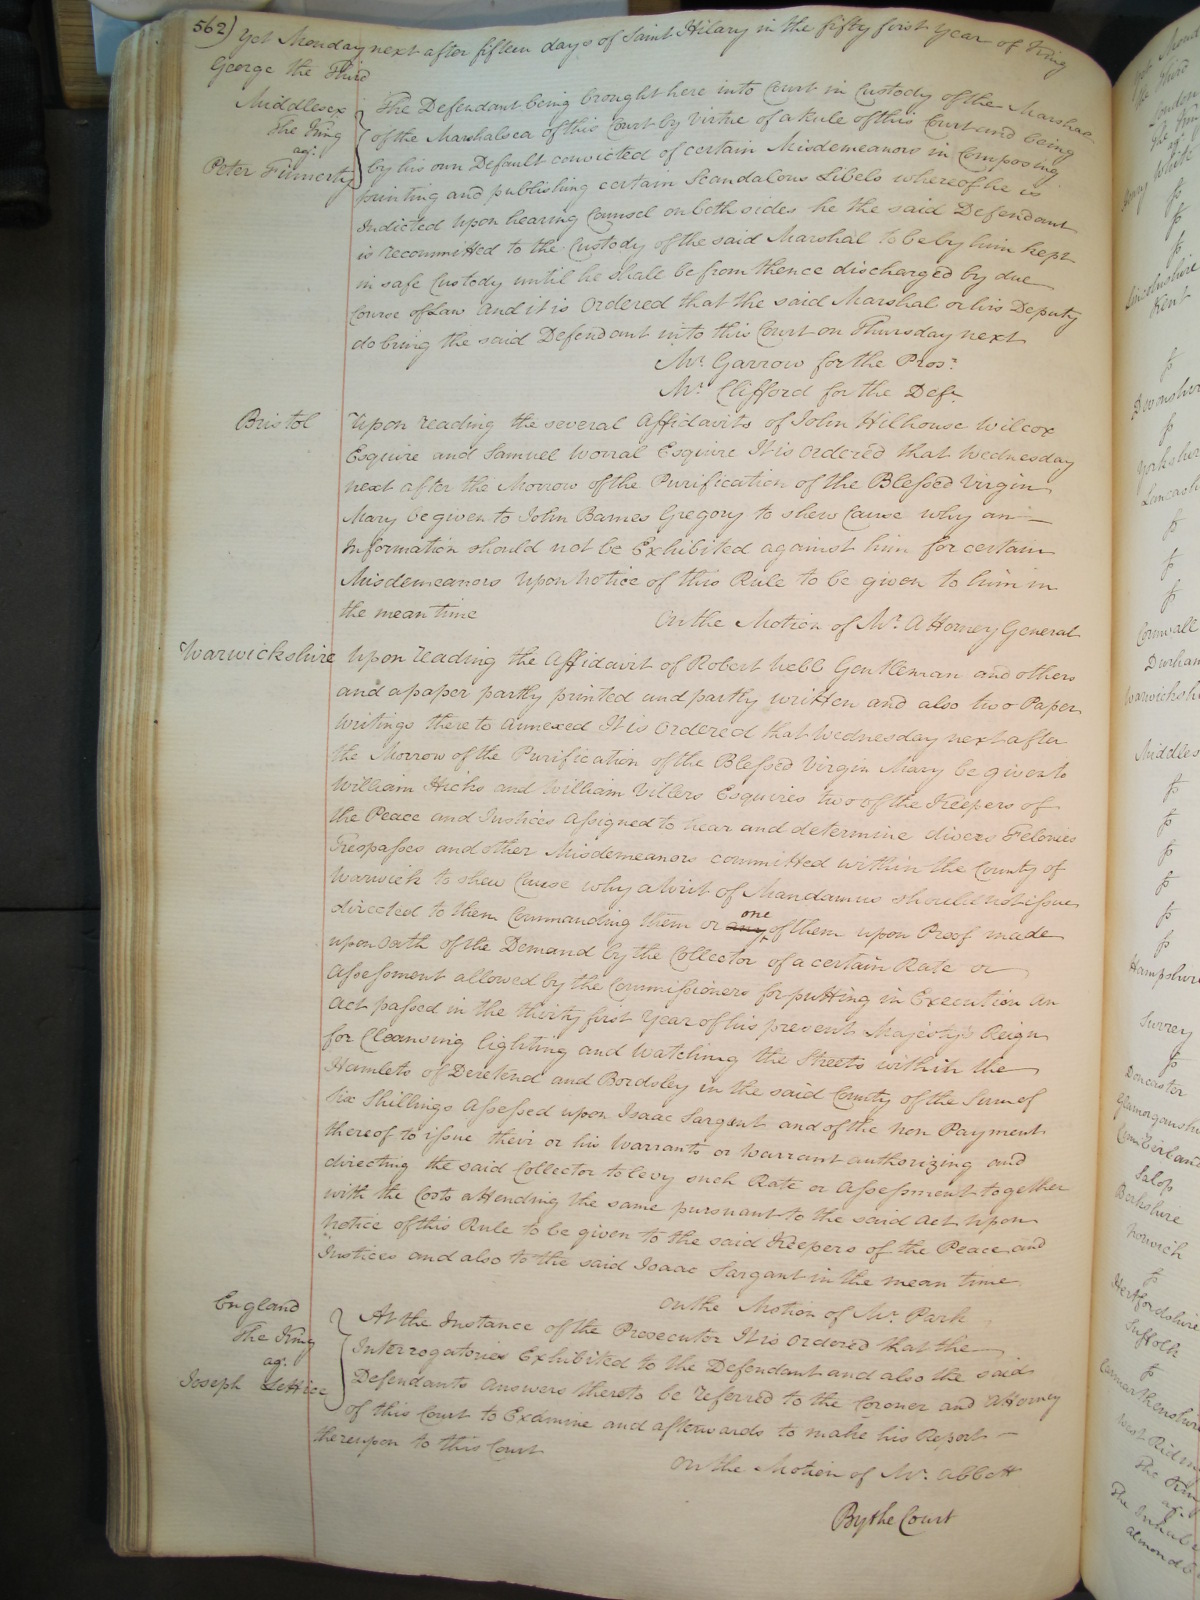 562) Yet Monday next after fifteen days of Saint Hilary in the fifty first Year of King
George the Third
Middlesex
The King
agt.
Peter Finnerty
The Defendant being brought here into Court in Custody of the Marshal
of the Marshalsea of this Court by Virtue of a Rule of this Court and being
by his own Default convicted of certain Misdemeanors in Composing
printing and publishing certain Scandalous Libels whereof he is
Indicted Upon hearing Counsel on both sides he the said Defendant
is recommitted to the Custody of the said Marshal to be by him kept
in safe Custody until he shall be from thence discharged by due
Course of Law And it is Ordered that the said Marshal or his Deputy
do bring the said Defendant into this Court on Thursday next
Mr. Garrow for the Prosr.
Mr. Clifford for the Deft.
Bristol
Upon reading the several Affidavits of John Hilhouse Wilcox
Esquire and Samuel Worral Esquire It is ordered that Wednesday
next after the Morrow of the Purification of the Blessed Virgin
Mary be given to John Barnes Gregory to shew Cause why an
Information should not be Exhibited against him for certain
Misdemeanors Upon Notice of this Rule to be given to him in
the mean time
On the Motion of Mr. Attorney General
Warwickshire
Upon reading the Affidavit of Robert Webb Gentleman and others
and a paper partly printed and partly written and also two Paper
Writings thereto annexed It is ordered that Wednesday next after
the Morrow of the Purification of the Blessed Virgin Mary be given to
William Hicks and William Villers Esquires two of the Keepers of
the Peace and Justices Assigned to hear and determine divers Felonies
Trespasses and other Misdemeanors committed within the County of
Warwick to shew Cause why a Writ of Mandamus should not issue
directed to them Commanding them or any one of them upon Proof made
upon Oath of the Demand by the Collector of a certain Rate or
Assessment allowed by the Commissioners for putting in Execution an
Act passed in the thirty first Year of his present Majesty's Reign
for Cleansing lighting and Watching the Streets within the
Hamlets of Deretend and Bordsley in the said County of the Sum of
Six Shillings Assessed upon Isaac Sargant and of the Non Payment
thereof to issue their or his Warrants or Warrant authorizing and
directing the said Collector to levy such Rate or Assessment together
with the Costs attending the same pursuant to the said Act Upon
Notice of this Rule to be given to the said Keepers of the Peace and
Justices and also to the said Isaac Sargant in the mean time
On the Motion of Mr. Park
England
The King
agt.
Joseph Lettice
At the Instance of the Prosecutor It is Ordered that the
Interrogatories Exhibited to the Defendant and also the said
Defendants Answers thereto be referred to the Coroner and Attorney
of this Court to Examine and afterwards to make his Report
thereupon to this Court
On the Motion of Mr. Abbott
By the Court
London
Lincolnshire
Kent
Cornwall
Surrey
Doncaster
Salop
Berkshire
Norwich
Hertfordshire
Suffolk